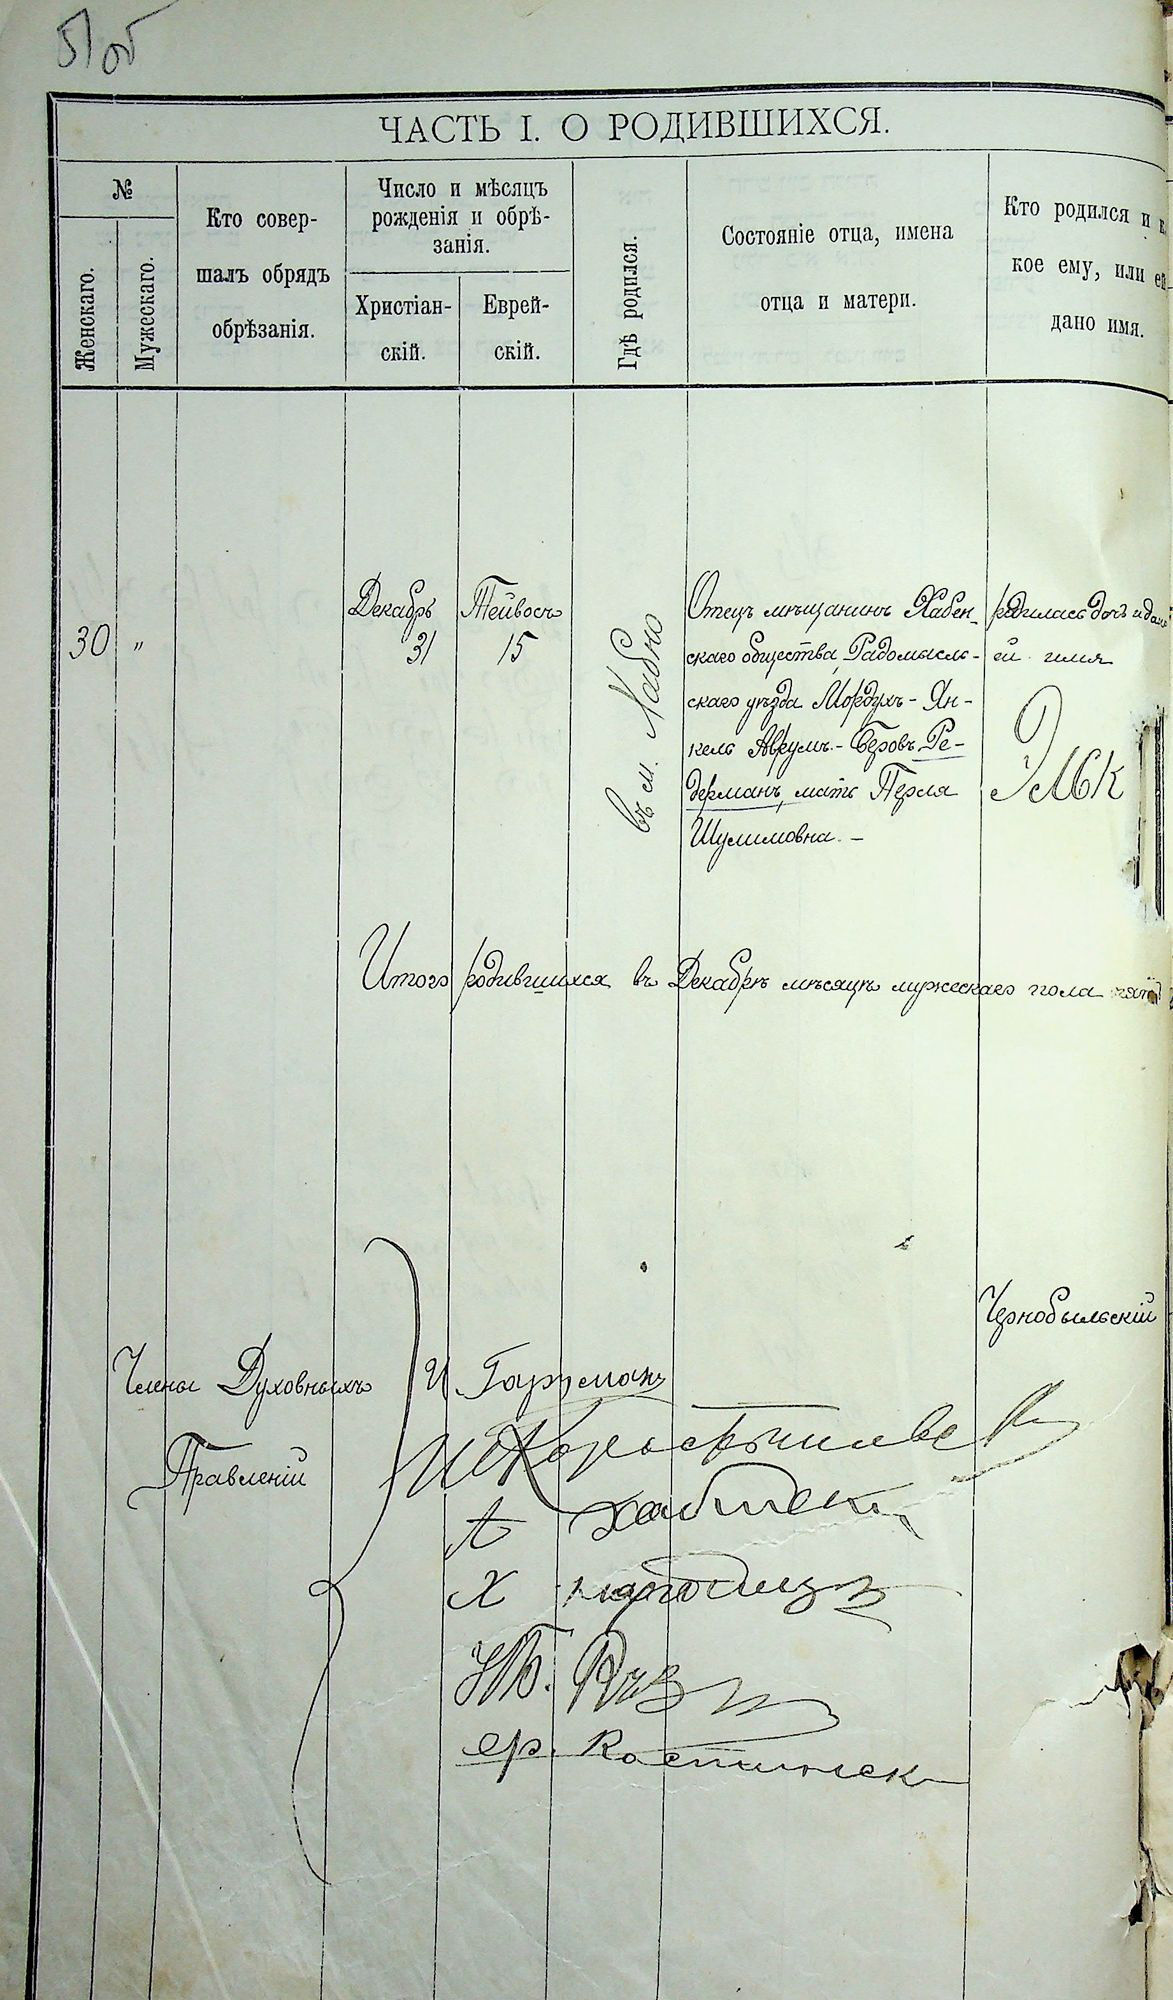 51 об
ЧАСТЬ I. О РОДИВШИХСЯ.
№
Женскаго.
Мужескаго.
Кто совер-
шалъ обрядъ
обрѣзанія.
Число и мѣсяцъ
рожденія и обрѣ-
занія.
Христіан-
скій.
Еврей-
скій.
Гдѣ родился.
Состояніе отца, имена
отца и матери.
Кто родился и к
кое ему, или ей
дано имя.
30 "
Декабрь
31
Тейвосъ
15
въ м. Хабно
Отецъ мѣщанинъ Хабен-
скаго общества, Радомысль-
скаго уѣзда Мордухъ-Ян-
кель Аврумъ-Беровъ Ре-
дерманъ, мать Перля
Шулимовна. –
родилась дочь и дано
ей имя
Итого родившихся въ Декабрѣ мѣсяцѣ мужескаго пола
Чернобыльскій
Члены Духовныхъ
Правленій
И.
А
Х
ер.